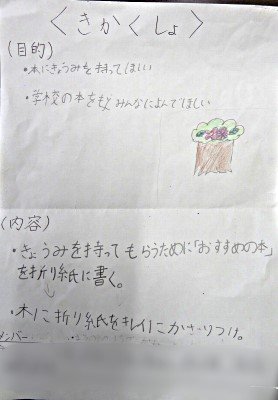 〈きかくしょ〉
(目的)
・本にきょうみを持ってほしい
・学校の本をもっとみんなによんでほしい
(内容)
・きょうみを持ってもらうために「おすすめの本」
を折り紙に書く。
↓
・木に折り紙をキレイにかざりつけ。
メンバー